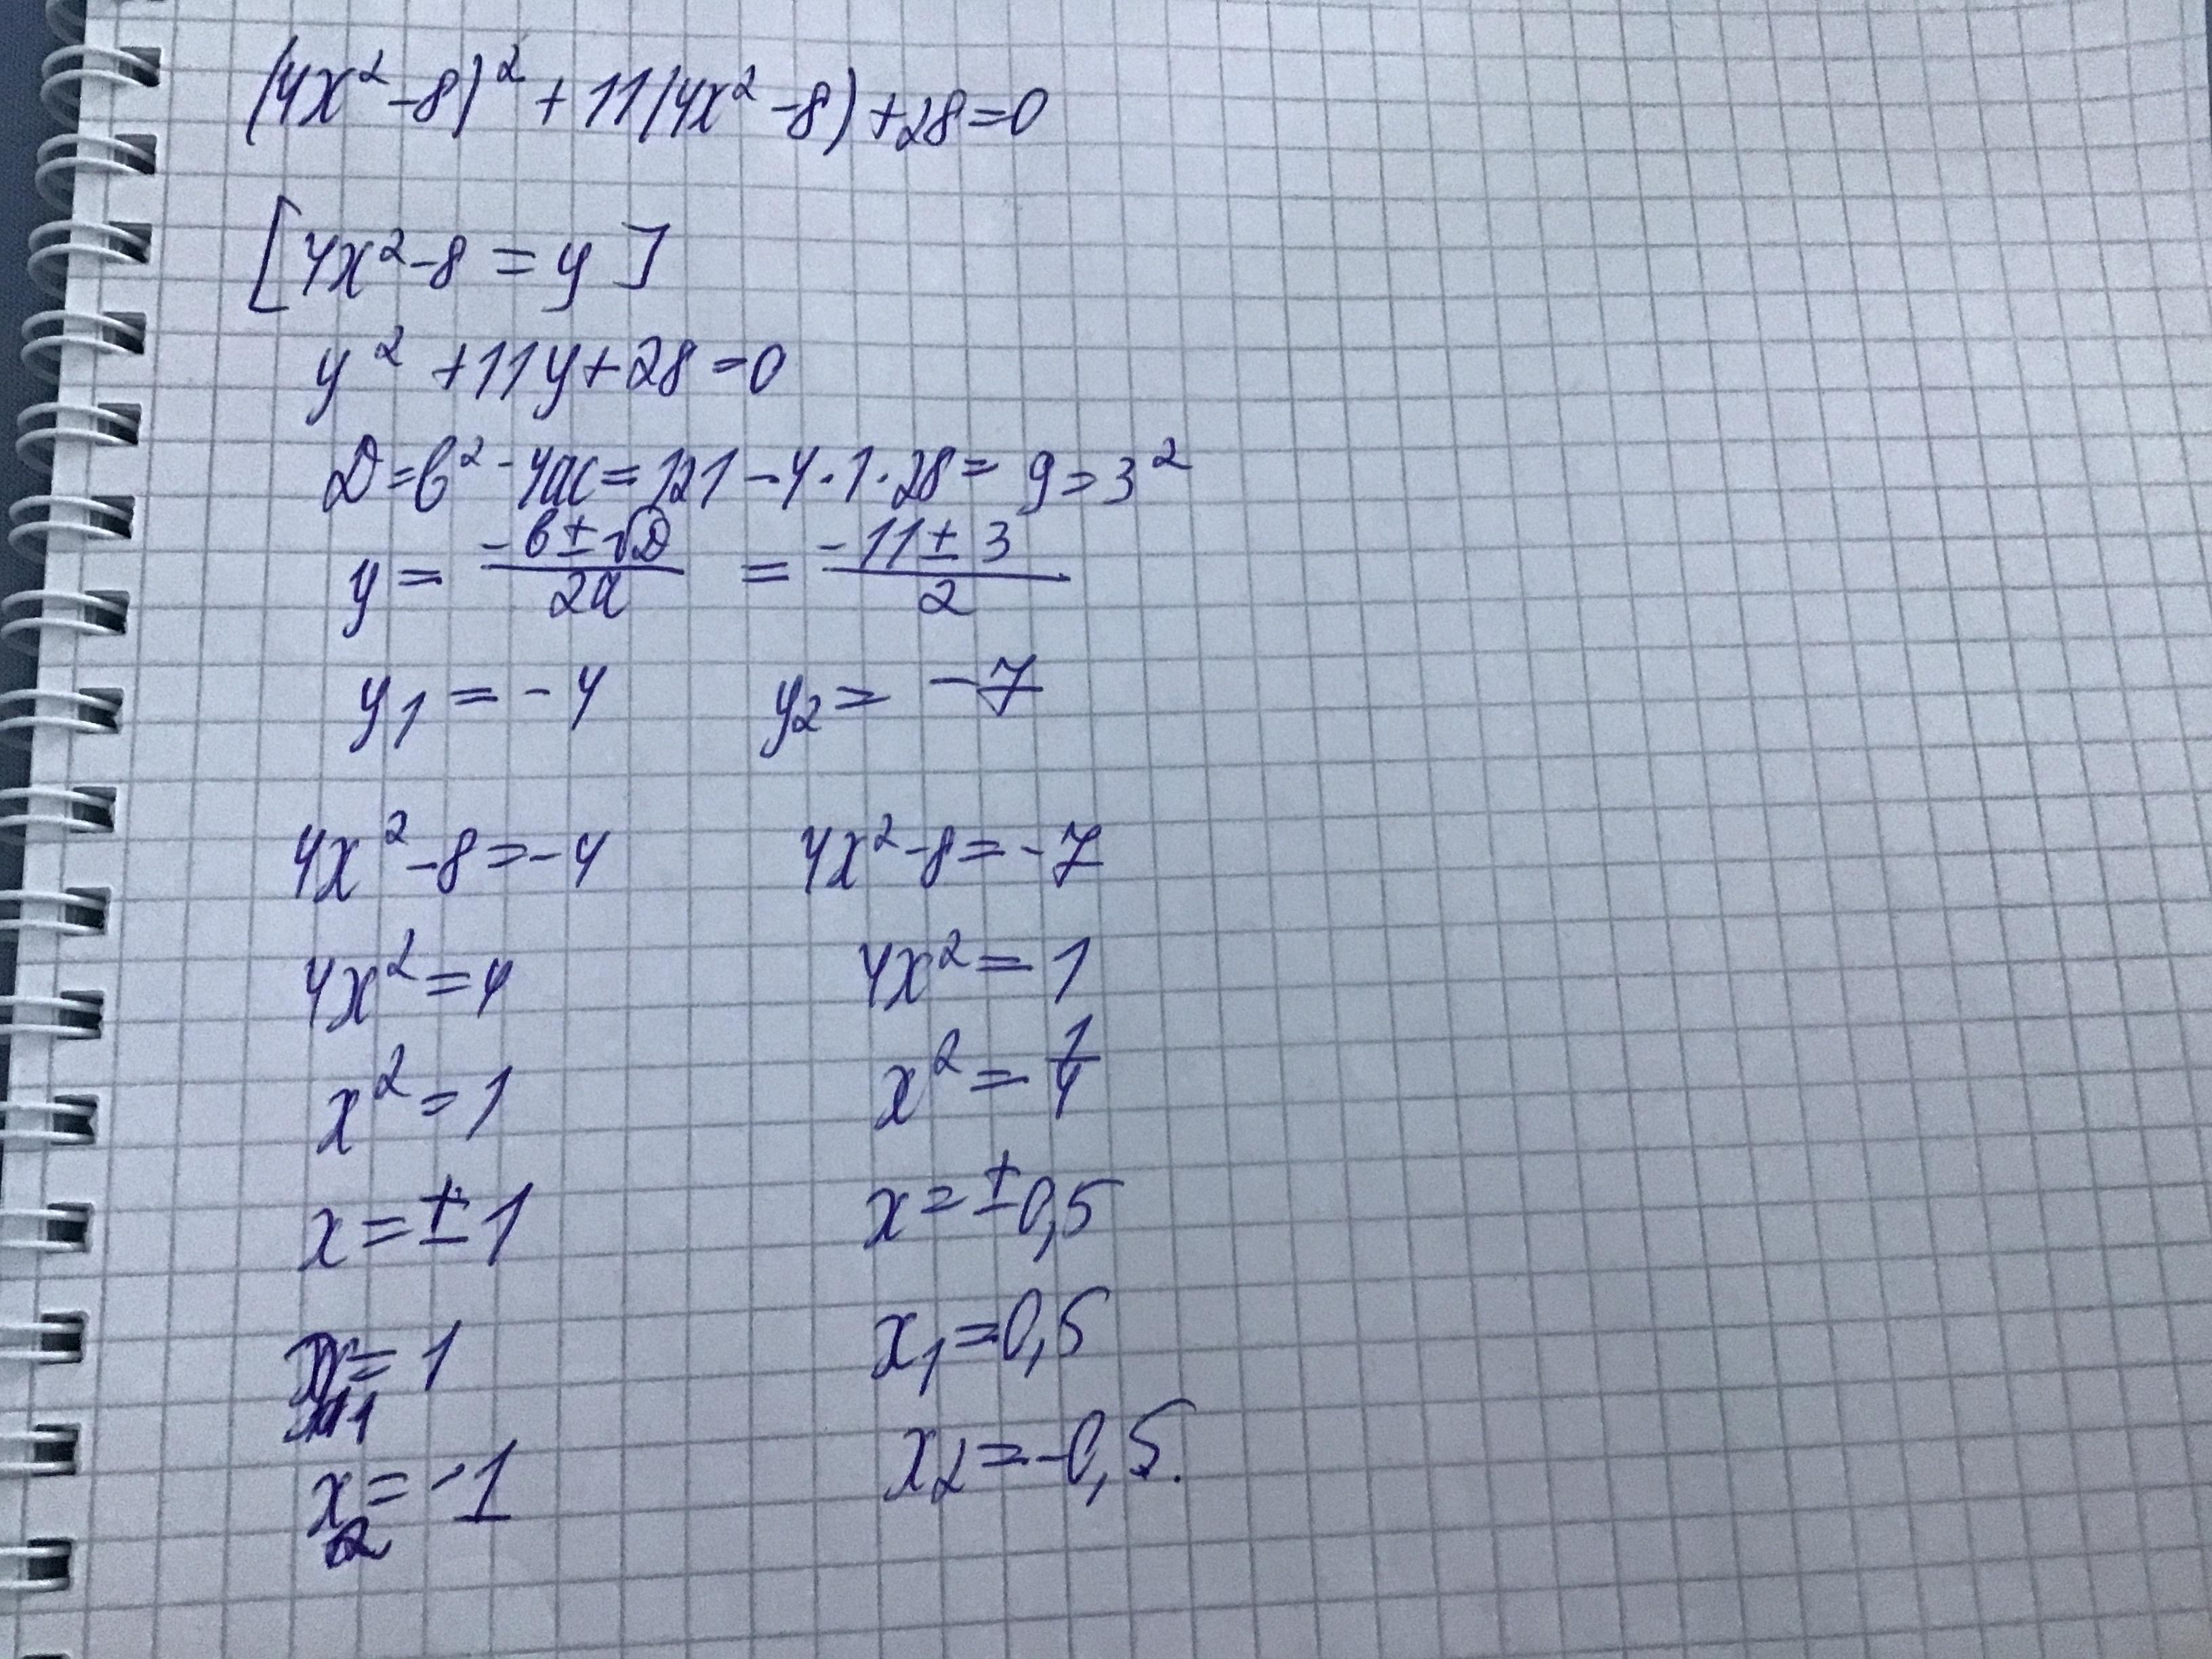 (4x²-8)²+11(4x²-8)+28=0
[4x²-8=y]
y²+11y+28=0
D=b²-4ac=121-4·1·28=9=3²
y=(-b±√D)/2a=(-11±3)/2
y₁=-4 y₂=-7
4x²-8=-4 4x²-8=-7
4x²=4 4x²=1
x²=1 x²=1/4
x=±1 x=±0,5
x₁=1 x₁=0,5
x₂=-1 x₂=-0,5.